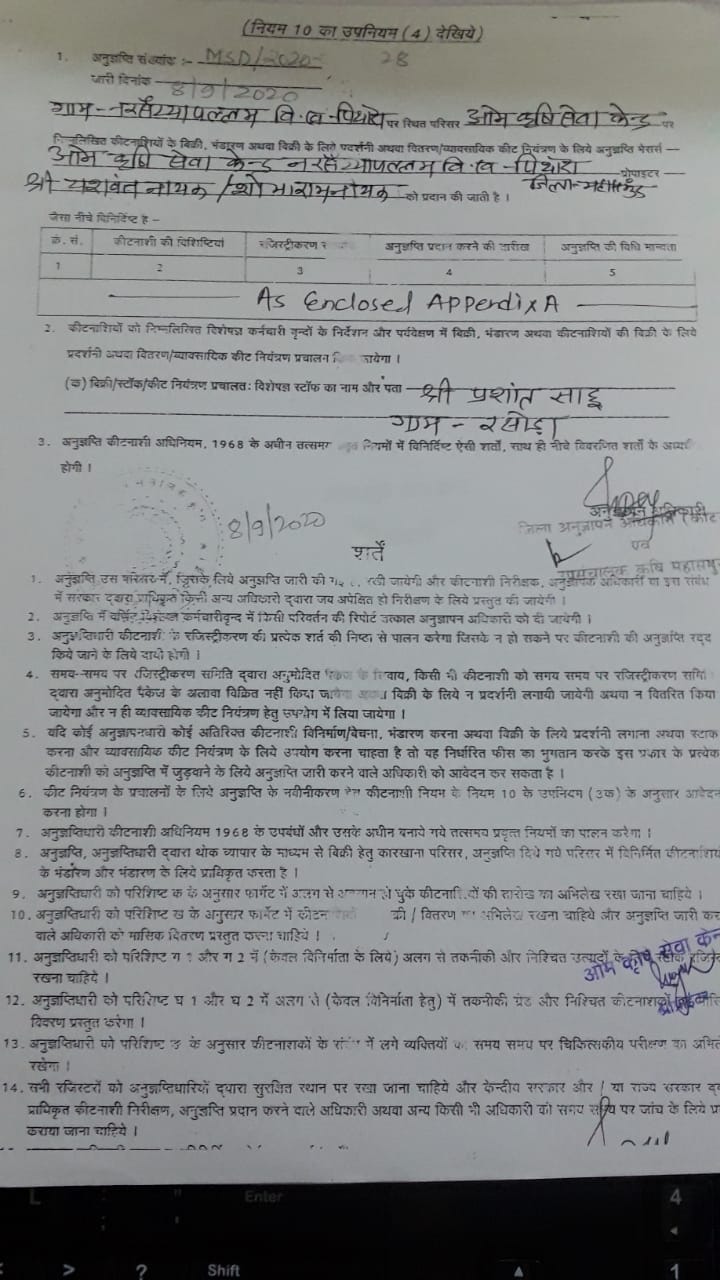 (नियम 10 का उपनियम (4) देखिये)
1. अनुज्ञप्ति संख्यांक :- MSD/2020- 28
जारी दिनांक 8/9/2020
ग्राम- नरसैय्यापल्लम वि.ख-पिथौरा पर स्थित परिसर ओम कृषि सेवा केन्द्र पर
निम्नलिखित कीटनाशियों के बिक्री, भंडारण अथवा बिक्री के लिये प्रदर्शनी अथवा वितरण/व्यावसायिक कीट नियंत्रण के लिये अनुज्ञप्ति मेसर्स
ओम कृषि सेवा केन्द्र नरसैय्यापल्लम वि.ख-पिथौरा प्रोपाइटर
श्री यशवंत नायक /शोभाराम नायक जिला-महासमुंद को प्रदान की जाती है ।
जैसा नीचे विनिर्दिष्ट है -
क्रं. सं. कीटनाशी की विशिष्टियां रजिस्ट्रीकरण अनुज्ञप्ति प्रदान करने की तारीख अनुज्ञप्ति की विधि मान्यता
1 2 3 4 5
As Enclosed Appendix A
2. कीटनाशियों को निम्नलिखित विशेषज्ञ कर्मचारी वृन्दों के निर्देशन और पर्यवेक्षण में बिक्री, भंडारण अथवा कीटनाशियों की बिक्री के लिये
प्रदर्शनी अथवा वितरण/व्यावसायिक कीट नियंत्रण प्रचालन जायेगा ।
(क) बिक्री/स्टॉक/कीट नियंत्रण प्रचालतः विशेषज्ञ स्टॉफ का नाम और पता श्री प्रशांत साहू
ग्राम - रसोड़ा
3. अनुज्ञप्ति कीटनाशी अधिनियम, 1968 के अधीन तत्समय नियमों में विनिर्दिष्ट ऐसी शर्तों, साथ ही नीचे विवरजित शर्तों के
होगी ।
8/9/2020
अनुज्ञापन अधिकारी
जिला अनुज्ञापन अधिकारी (कीट
एवं
उपसंचालक कृषि महासमुंद
शर्तें
1. अनुज्ञप्ति उस परिसर में, जिसके लिये अनुज्ञप्ति जारी की रखी जायेगी और कीटनाशी निरीक्षक, अनुज्ञापक अधिकारी या इस संबंध
में सरकार द्वारा प्राधिकृत किसी अन्य अधिकारी द्वारा जब अपेक्षित हो निरीक्षण के लिये प्रस्तुत की जायेगी ।
2. अनुज्ञप्ति में वर्णित विशेषज्ञ कर्मचारीवृन्द में किसी परिवर्तन की रिपोर्ट तत्काल अनुज्ञापन अधिकारी को दी जायेगी ।
3. अनुज्ञप्तिधारी कीटनाशी के रजिस्ट्रीकरण की प्रत्येक शर्त की निष्ठा से पालन करेगा जिसके न हो सकने पर कीटनाशी की अनुज्ञप्ति रद्द
किये जाने के लिये दायी होगी ।
4. समय-समय पर रजिस्ट्रीकरण समिति द्वारा अनुमोदित के सिवाय, किसी भी कीटनाशी को समय समय पर रजिस्ट्रीकरण समि
द्वारा अनुमोदित पैकेज के अलावा विक्रित नहीं किया बिक्री के लिये न प्रदर्शनी लगायी जायेगी अथवा न वितरित किया
जायेगा और न ही व्यावसायिक कीट नियंत्रण हेतु उपयोग में लिया जायेगा ।
5. यदि कोई अनुज्ञापनधारी कोई अतिरिक्त कीटनाशी विनिर्माण/बेचना, भंडारण करना अथवा बिक्री के लिये प्रदर्शनी लगाना अथवा स्टाक
करना और व्यावसायिक कीट नियंत्रण के लिये उपयोग करना चाहता है तो यह निर्धारित फीस का भुगतान करके इस प्रकार के प्रत्येक
कीटनाशी को अनुज्ञप्ति में जुड़वाने के लिये अनुज्ञप्ति जारी करने वाले अधिकारी को आवेदन कर सकता है ।
6. कीट नियंत्रण के प्रचालनों के लिये अनुज्ञप्ति के नवीनीकरण हेतु कीटनाशी नियम के नियम 10 के उपनियम (3क) के अनुसार आवेदन
करना होगा ।
7. अनुज्ञप्तिधारी कीटनाशी अधिनियम 1968 के उपबंधों और उसके अधीन बनाये गये तत्समय प्रवृत्त नियमों का पालन करेगा ।
8. अनुज्ञप्ति, अनुज्ञप्तिधारी द्वारा थोक व्यापार के माध्यम से बिक्री हेतु कारखाना परिसर, अनुज्ञप्ति दिये गये परिसर में विनिर्मित कीटनाशियों
के भंडारण और भंडारण के लिये प्राधिकृत करता है ।
9. अनुज्ञप्तिधारी को परिशिष्ट क के अनुसार फार्मेट में अलग से हो चुके कीटनाशियों की तारीख का अभिलेख रखा जाना चाहिये ।
10. अनुज्ञप्तिधारी को परिशिष्ट ख के अनुसार फार्मेट में की / वितरण का अभिलेख रखना चाहिये और अनुज्ञप्ति जारी कर
वाले अधिकारी को मासिक वितरण प्रस्तुत करना चाहिये ।
11. अनुज्ञप्तिधारी को परिशिष्ट ग 1 और ग 2 में (केवल विनिर्माता के लिये) अलग से तकनीकी और निश्चित उत्पादों के स्टॉक रजिस्
रखना चाहिये ।
ओम कृषि सेवा केन्
12. अनुज्ञप्तिधारी को परिशिष्ट घ 1 और घ 2 में अलग से (केवल विनिर्माता हेतु) में तकनीकी ग्रेड और निश्चित कीटनाशकों
विवरण प्रस्तुत करेगा ।
13. अनुज्ञप्तिधारी को परिशिष्ट ङ के अनुसार कीटनाशकों के में लगे व्यक्तियों का समय समय पर चिकित्सकीय परीक्षण का अभिले
रखेगा ।
14. सभी रजिस्टरों को अनुज्ञप्तिधारियों द्वारा सुरक्षित स्थान पर रखा जाना चाहिये और केन्दीय सरकार और / या राज्य सरकार द्व
प्राधिकृत कीटनाशी निरीक्षण, अनुज्ञप्ति प्रदान करने वाले अधिकारी अथवा अन्य किसी भी अधिकारी को समय समय पर जांच के लिये प्र
कराया जाना चाहिये ।
L : " Enter 4
< > ? Shift 1